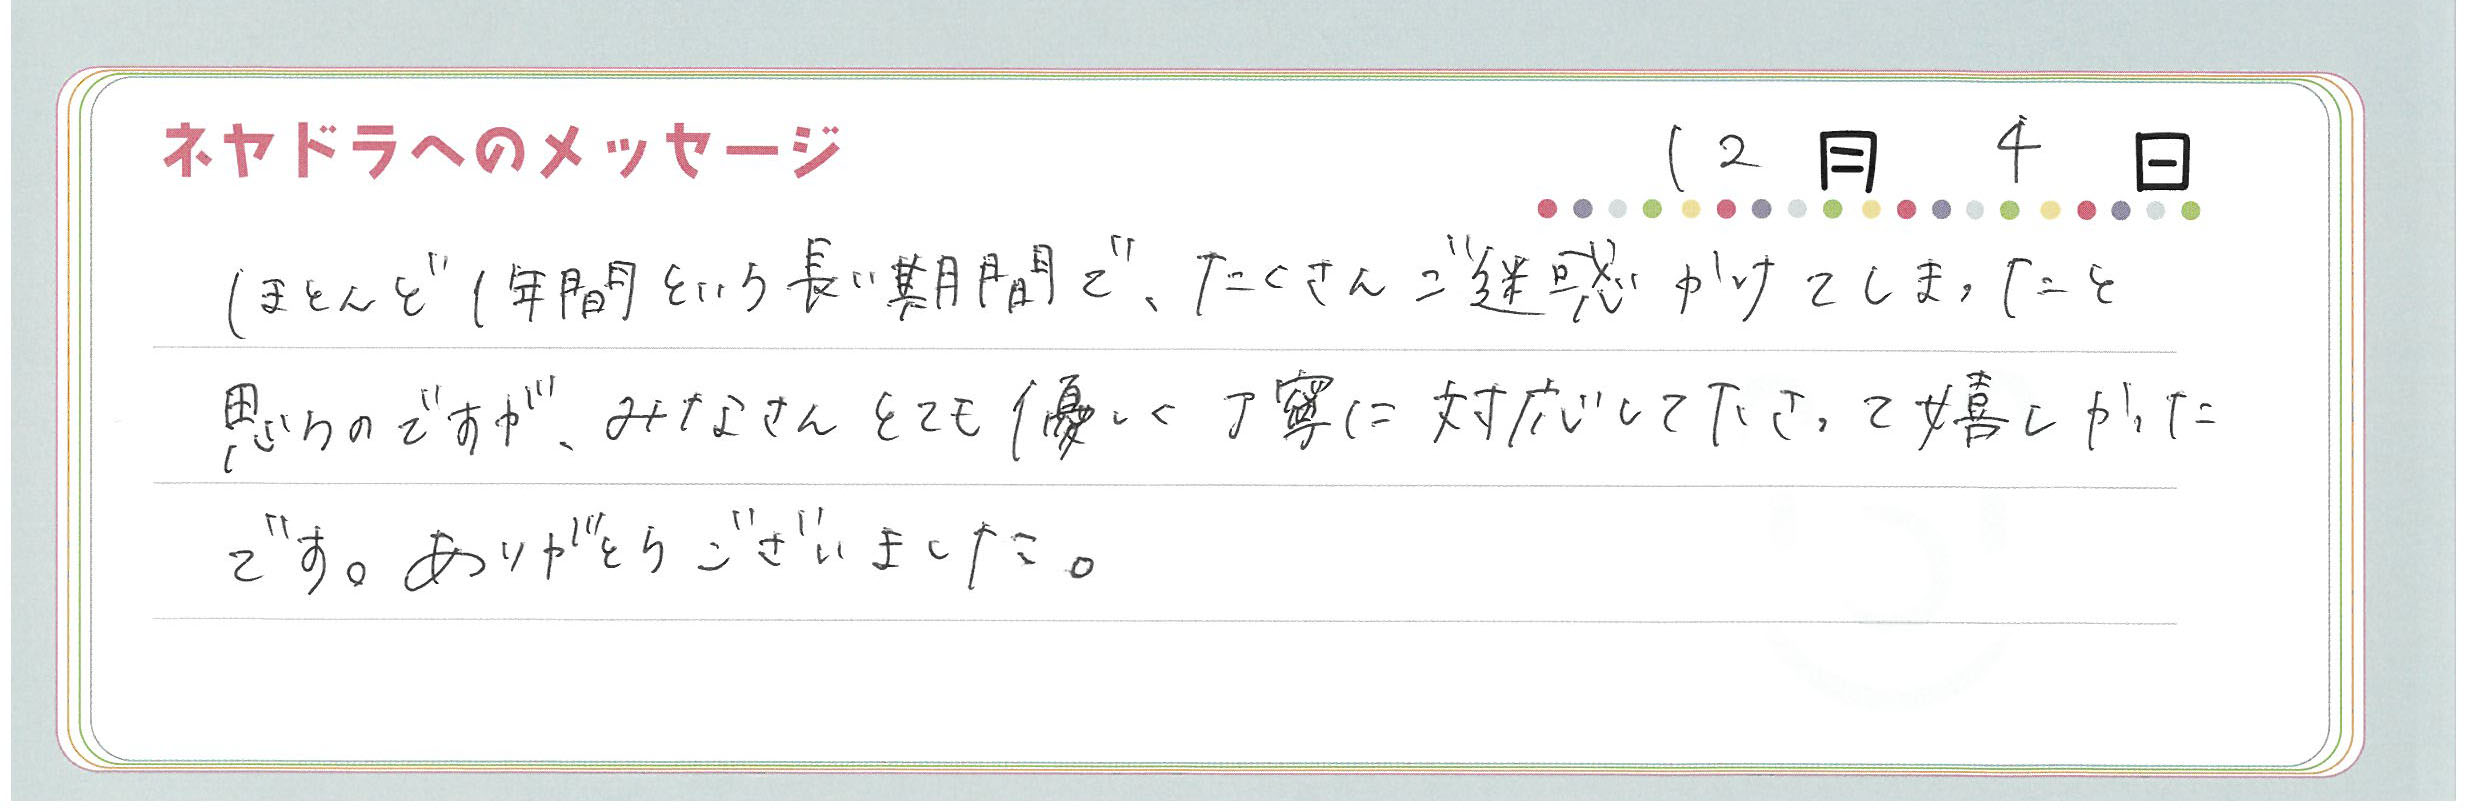 ネヤドラへのメッセージ
12月 4日
ほとんど1年間という長い期間で、たくさんご迷惑かけてしまったと
思うのですが、みなさんとても優しく丁寧に対応して下さって嬉しかった
です。ありがとうございました。